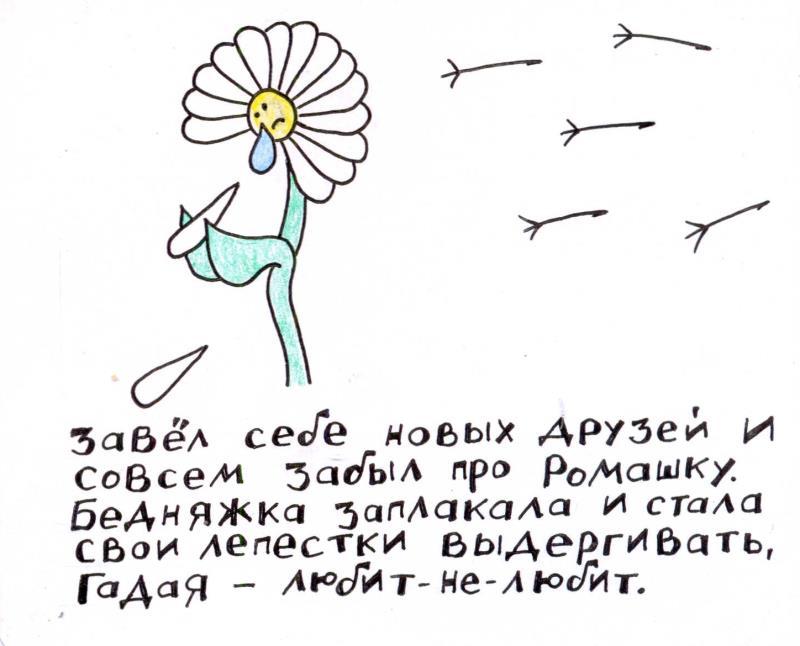 Завёл себе новых друзей и
совсем забыл про Ромашку.
Бедняжка заплакала и стала
свои лепестки выдергивать,
гадая – любит-не-любит.